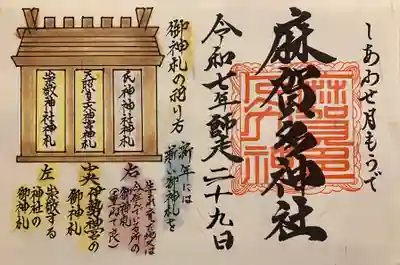 しあわせ月もうで
麻賀多神社
令和七年師走二十九日
御神札の祀り方
新年には
新しい御神札を
右
氏神神社の
御神札
中央
伊勢神宮の
御神札
左
崇敬する
神社の
御神札
氏神神社神札
天照皇大神宮神札
崇敬神社神札